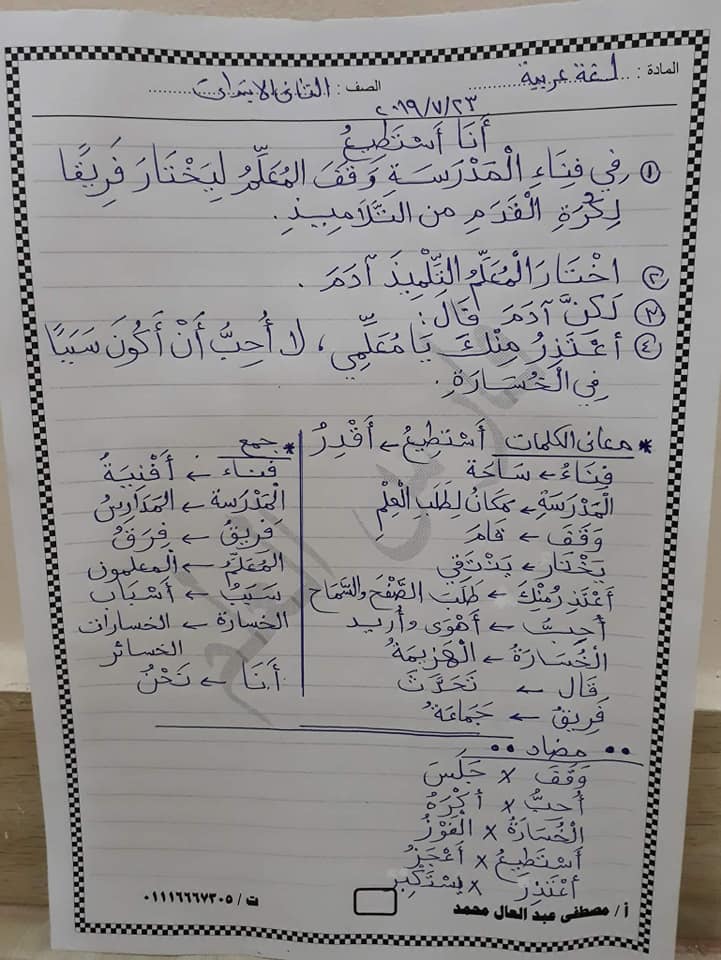 المادة : لغة عربية
الصف : الثانى الابتدائى
٢٠١٩/٧/٢٣
أَنَا أَسْتَطِيعُ
١ فِي فِنَاءِ الْمَدْرَسَةِ وَقَفَ المُعَلِّمُ لِيَخْتَارَ فَرِيقًا
لِكُرَةِ الْقَدَمِ مِن التَّلَامِيذِ.
٢ اخْتَارَ الْمُعَلِّمُ التِّلْمِيذَ آدَمَ .
٣ لَكِنَّ آدَمَ قَالَ:
٤ أَعْتَذِرُ مِنْكَ يَا مُعَلِّمِي ، لَا أُحِبُّ أَنْ أَكُونَ سَبَبًا
فِي الْخُسَارَةِ.
* معانى الكلمات أَسْتَطِيعُ ← أَقْدِرُ
فِنَاءُ ← سَاحَة
الْمَدْرَسَةِ ← مَكَانُ لِطَلَبِ الْعِلْمِ
وَقَفَ ← قَامَ
يَخْتَار ← يَنْتَقِي
أَعْتَذِرُ مِنْكَ ← طَلَبَ الصَّفْحَ والسَّمَاح
أُحِبُّ ← أَهْوَى وأريد
الْخُسَارَةُ ← الْهَزِيمَةُ
قَال ← تَحَدَّثَ
فَرِيقُ ← جَمَاعَةُ
* جمع
فناء ← أَفْنِيَةُ
الْمَدْرَسة ← المَدَارِسُ
فَرِيقُ ← فِرَقُ
المُعَلِّمُ ← المعلمون
سَبَبُ ← أَسْبَاب
الخسارة ← الخسارات
الخسائر
أَنَا ← نَحْنُ
مضاد
وَقَفَ × جَلَسَ
أُحِبُّ × أَكْرَهُ
الْخُسَارَةُ × الْفَوْزُ
أَسْتَطِيعُ × أَعْجَزُ
أَعْتَذِرُ × يستَكْبِر
أ / مصطفى عبد العال محمد
ت / ٠١١١٦٦٦٧٣٠٥